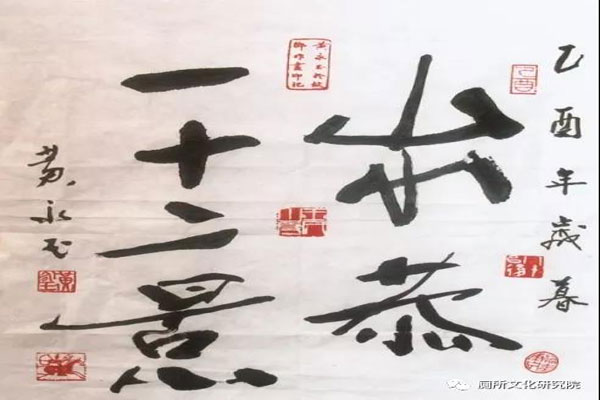 乙酉年歲暮
出恭
一十二景
黄永玉
厕所文化研究院